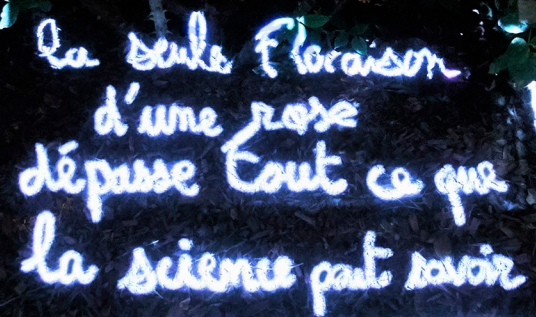 la seule Floraison
d'une rose
dépasse tout ce que
la science peut savoir